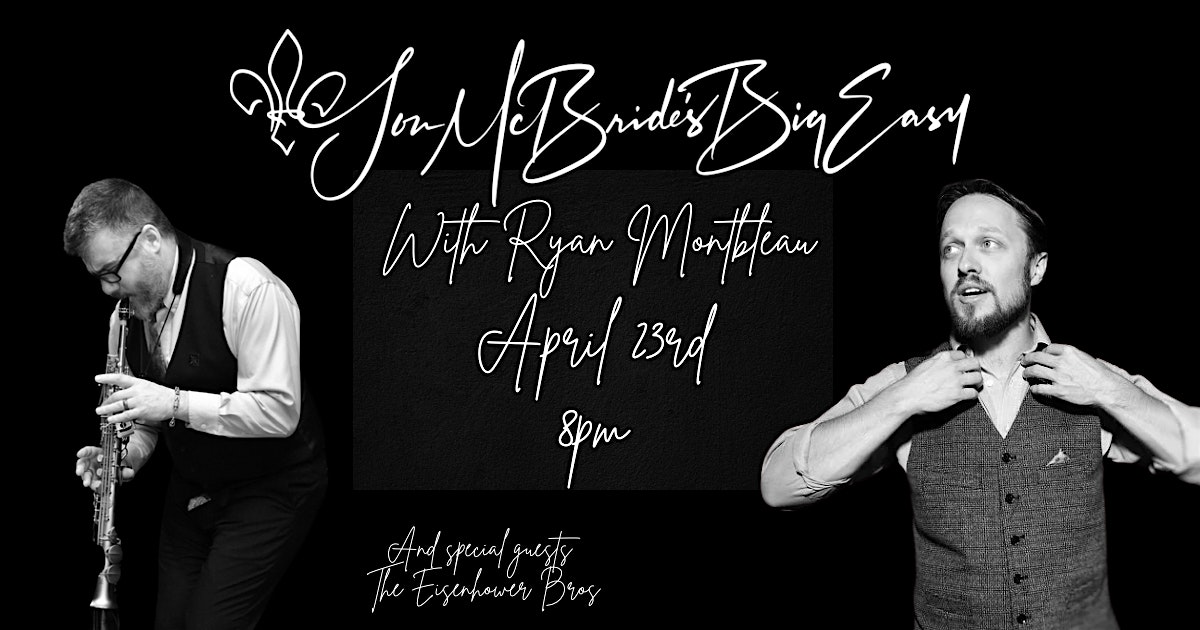 Jon McBride's Big Easy
With Ryan Montbleau
April 23rd
8pm
And special guests
The Eisenhower Bros